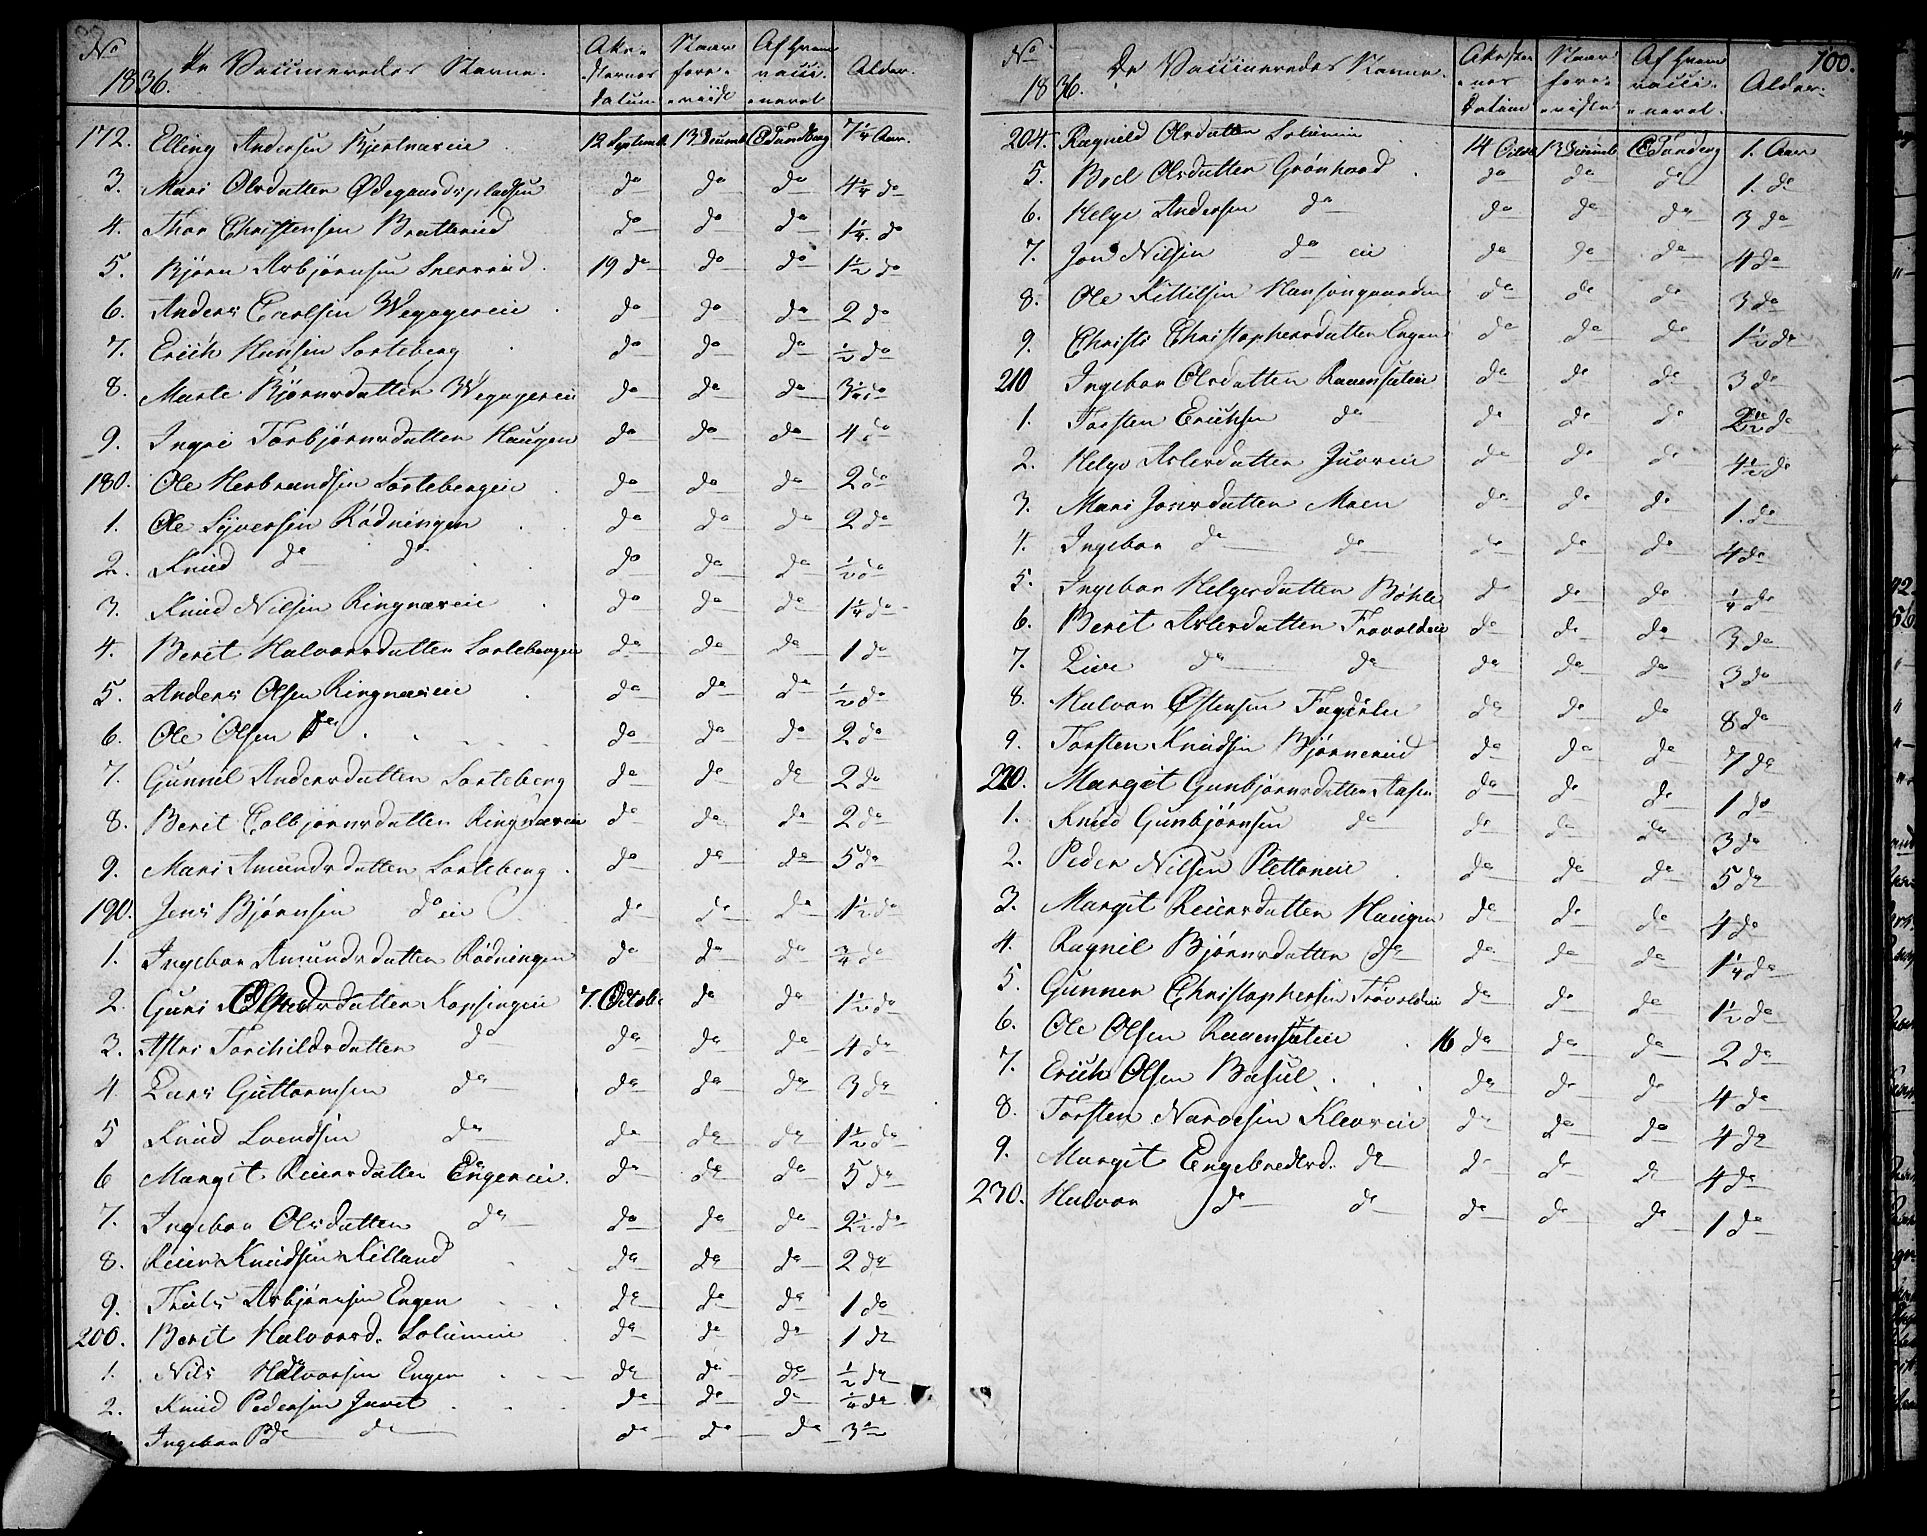 No 1836. De Vaccineredes Navne. Attesternes datum Naar foreviist Af hvem vaccineret Alder.
172. Elling Andersen 12 Septemb. 13 Decemb. Tandberg 7 1/4 Aar.
3. Mari Olsdatter Ødegaardspladsen do do do 4 1/4 do
4. Thor Christensen Bratterud do do do 1 1/4 do
5. Bjørn Asbjørnsen 19 do do do 1 1/2 do
6. Anders Carlsen do do do 2 do
7. Erich Hansen Sorteberg do do do 1/2 do
8. Marte Bjørnsdatter do do do do
9. Ingri Torbjørnsdatter Haugen do do do 4 do
180. Ole Herbrandsen Sortebergeie do do do 2 do
1. Ole Syversen Rødningen do do do 2 do
2. Knud do do do do do 1/2 do
3. Knud Nilsen Ringnæseie do do do 1 1/4 do
4. Berit Halvorsdatter Sortebergeie do do do 1 do
5. Anders Olsen Ringnæseie do do do 1/2 do
6. Ole Olsen do do do do 2 do
7. Gunnil Andersdatter Sorteberg do do do 2 do
8. Berit Colbjørnsdatter Ringnæseie do do do 2 do
9. Mari Amundsdatter Sorteberg do do do 5 do
190. Jens Bjørnsen do eie do do do 1 1/2 do
1. Ingebor Amundsdatter Rødningen do do do 3/4 do
2. Guri Kopsingeie 7. Octobr do do 1 1/2 do
3. Astri Torchildsdatter do do do do 4 do
4. Lars Guttormsen do do do do 3 do
5 Knud Svendsen do do do do 1 1/2 do
6 Margit Reiersdatter Engereie. do do do 5 do
7. Ingebor Olsdatter do do do do 2 1/2 do
8. Reier Knudsen Killand do do do 2 do
9. Truls Asbjørnsen Engen do do do 1 do
200. Berit Halvorsd. Solumeie do do do 1 do
1. Nils Halvorsen Engen do do do 1/2 do
2. Knud Pedersen Juvet do do do 1/4 do
Ingebor P do do do do do 3 do
100.
No 1836. De Vaccineredes Navne. Attesternes Datum Naar forevist Af hvem vaccineret. Alder.
204. Ragnild Olsdatter Solumeie 14 Octbr 13 Decemb Tandberg 1. Aar
5. Boel Olsdatter Grønhovd do do do 1. do
6. Helge Andersen do do do do 3 do
7. Jon Nilsen do eie do do do 4 do
8. Ole Kittilsen Hansengaarden do do do 3 do
9. Christi Christophersdatter Engene do do do 1 1/2 do
210 Ingebor Olsdatter Raaensateie do do do 3 do
1. Torsten Erichsen do do do do 2 1/2 do
2. Helge Aslesdatter Juveeie do do do 4 1/2 do
3. Mari Jonsdatter Moen do do do 1. do
4. Ingebor do do do do do 4 do
5. Ingebor Helgesdatter Bøhle do do do 1/4 do
6. Berit Aslesdatter Trovoldeie do do do 3 do
7. Live do do do do do 3 do
8. Halvor Østensen do do do 8 do
9. Torsten Knudsen Bjørnerud do do do 7 do
220. Margit Gunbjørnsdatter Aasen do do do 1 do
1. Knud Gunbjørnsen do do do do 3 do
2. Peder Nilsen Pletteneie do do do 5 do
3. Margit Reiersdatter Haugen do do do 4 do
4. Ragnil Bjørnsdatter do do do do 1 1/4 do
5. Gunner Christophersen Trovoldeie do do do 1 1/2 do
6. Ole Olsen Raaensateie 16 do do do 2 do
7. Erich Olsen do do do 4 do
8. Torsten Narvesen Kleveeie do do do 4 do
9. Margit Engebredtsd. do do do do 4 do
230. Halvor do do do do do 1 do